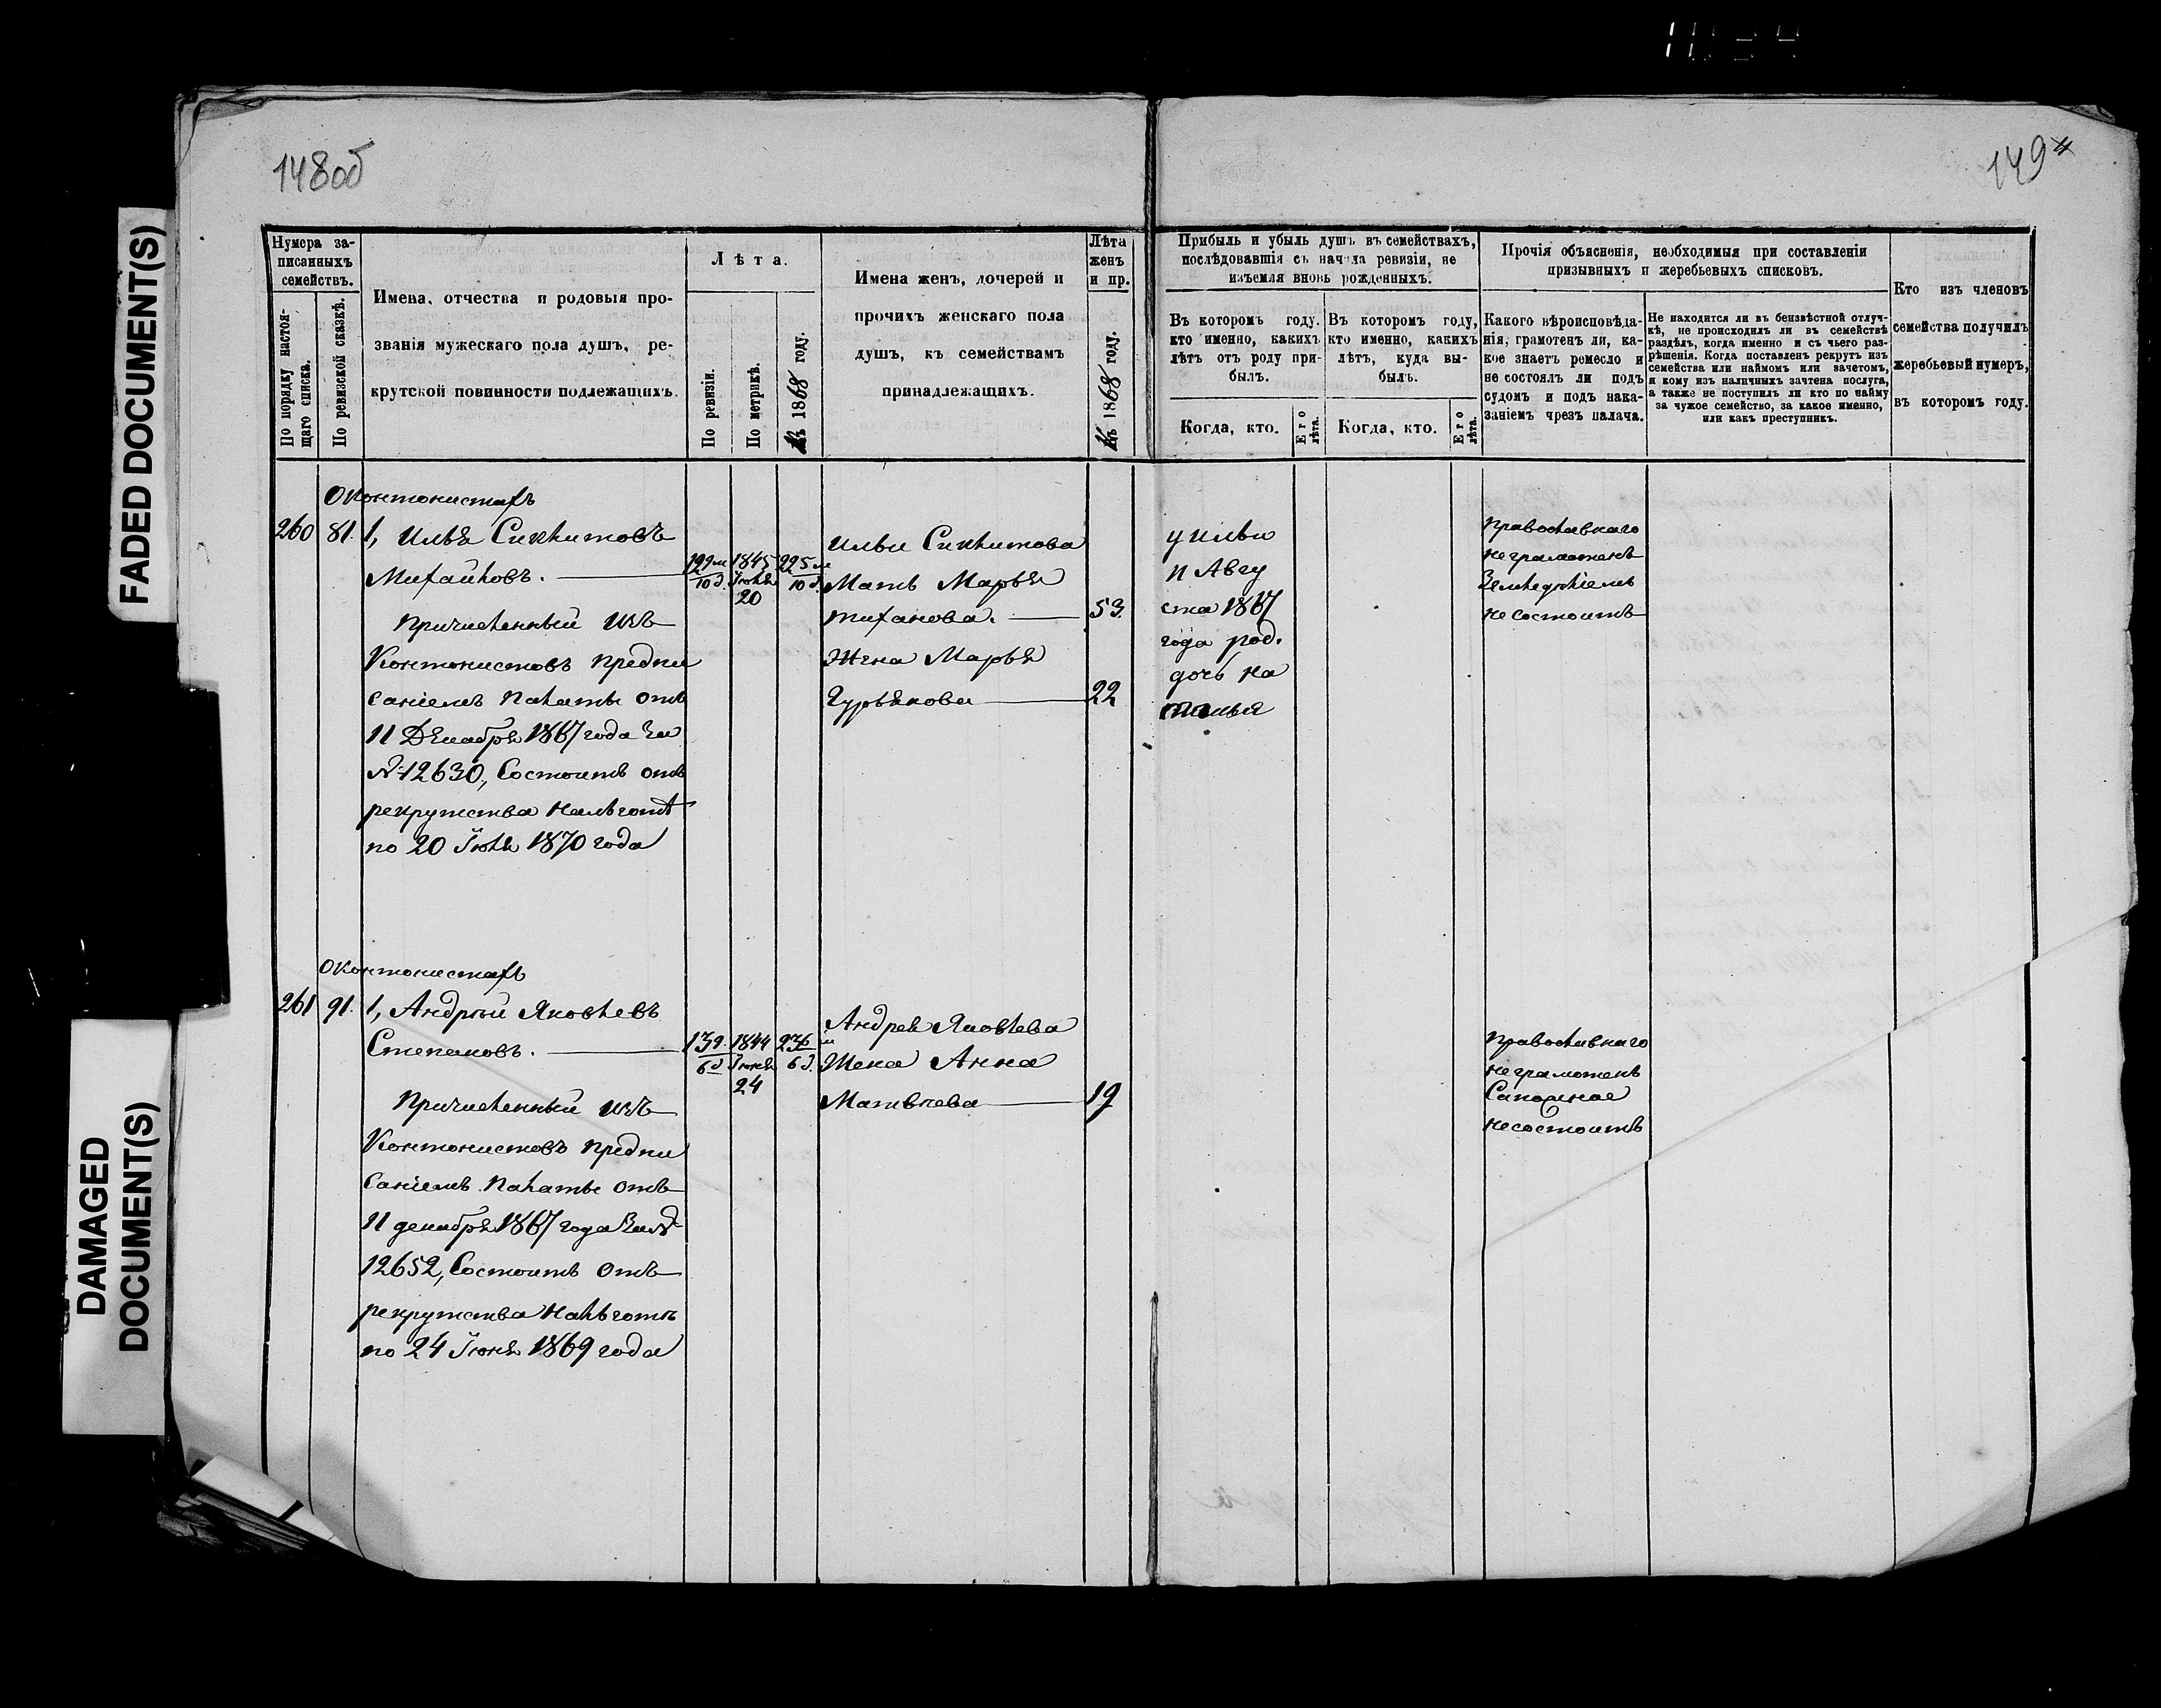 148об
149
FADED DOCUMENT(S)
DAMAGED
DOCUMENT(S)
Нумера за-
писанныхъ
семействъ.
По порядку настоя-
щаго списка.
По ревизской сказкѣ.
Имена, отчества и родовыя про-
званія мужескаго пола душъ, ре-
крутской повинности подлежащихъ.
Лѣта.
По ревизіи.
По метрикѣ.
Къ 1868 году.
Имена женъ, дочерей и
прочихъ женскаго пола
душъ, къ семействамъ
принадлежащихъ.
Лѣта
женъ
и пр.
Къ 1868 году.
Прибыль и убыль душъ въ семействахъ,
послѣдовавшія съ начала ревизіи, не
изъемля вновь рожденныхъ.
Въ которомъ году,
кто именно, какихъ
лѣтъ отъ роду при-
былъ.
Когда, кто.
Его
лѣта.
Въ которомъ году,
кто именно, какихъ
лѣтъ, куда вы-
былъ.
Когда, кто.
Его
лѣта.
Прочія объясненія, необходимыя при составленіи
призывныхъ и жеребьевыхъ списковъ.
Какого вѣроисповѣда-
нія, грамотенъ ли, ка-
кое знаетъ ремесло и
не состоялъ ли подъ
судомъ и подъ нака-
заніемъ чрезъ палача.
Не находится ли въ безвѣстной отлуч-
кѣ, не происходилъ ли въ семействѣ
раздѣлъ, когда именно и съ чьего раз-
рѣшенія. Когда поставленъ рекрутъ изъ
семейства или наймомъ или зачетомъ,
и кому изъ наличныхъ зачтена послуга,
а также не поступилъ ли кто по найму
за чужое семейство, за какое именно,
или какъ преступникъ.
Кто изъ членовъ
семейства получилъ
жеребьевый нумеръ,
въ которомъ году.
О Контонистахъ
260 81. 1, Илья
Михайловъ.
Причисленный изъ
Контонистовъ предпи
саніемъ Палаты отъ
11 Декабря 1867 года за
№ 12630, Состоитъ отъ
рекрутства на льготѣ
по 20 Іюля 1870 года
10 д.
1845
Іюля
20
10 д.
Ильи
Мать Марья
53.
Жена Марья
Гурьянова 22
у Ильи
11 Авгу
ста 1867
года род.
дочь На
талья
Православнаго
неграмотенъ
Земледѣліемъ
несостоитъ
О Контонистахъ
261 91. 1, Андрей Яковлевъ
Степановъ.
Причисленный изъ
Контонистовъ предпи
саніемъ Палаты отъ
11 декабря 1867 года за №
12652, Состоитъ отъ
рекрутства на льготѣ
по 24 Іюня 1869 года
6 д.
1844
Іюня
24
6 д.
Андрея Яковлева
Жена Анна
Матвѣева 19
Православнаго
неграмотенъ
Сапожное
несостоитъ